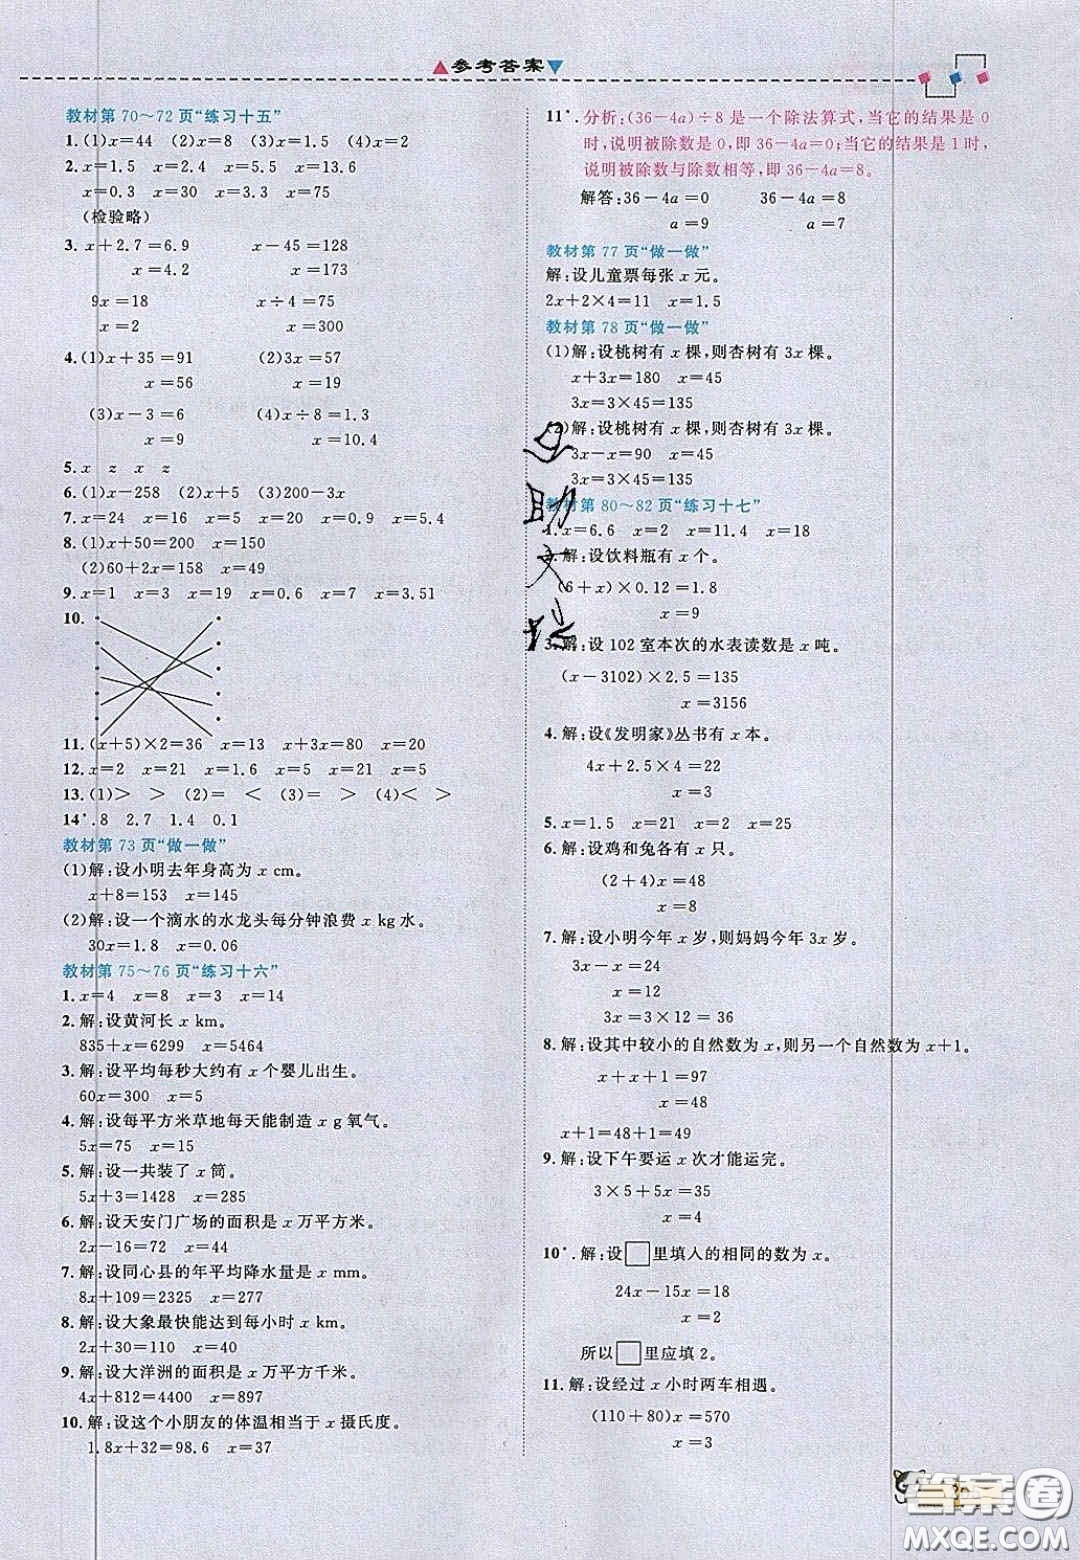 参考答案
教材第70～72页“练习十五”
1.(1)x=44 (2)x=8 (3)x=1.5 (4)x=2
2.x=1.5 x=2.4 x=5.5 x=13.6
x=0.3 x=30 x=3.3 x=75
(检验略)
3. x+2.7=6.9 x-45=128
x=4.2 x=173
9x=18 x÷4=75
x=2 x=300
4.(1)x+35=91 (2)3x=57
x=56 x=19
(3)x-3=6 (4)x÷8=1.3
x=9 x=10.4
5.x z x z
6.(1)x-258 (2)x+5 (3)200-3x
7.x=24 x=16 x=5 x=9 x=5.4
8.(1)x+50=200 x=150
(2)60+2x=158 x=49
9.x=1 x=3 x=19 x=0.6 x=7 x=3.51
10.
11.(x+5)×2=36 x=13 x+3x=80 x=20
12.x=2 x=21 x=1.6 x=5 x=21
13.(1)> > (2)= < (3)= > (4)< >
14*.8 2.7 1.4 0.1
教材第73页“做一做”
(1)解:设小明去年身高为 x cm。
x+8=153 x=145
(2)解:设一个滴水的水龙头每分钟浪费 x kg水。
30x=1.8 x=0.06
教材第75～76页“练习十六”
1.x=4 x=8 x=3 x=14
2.解:设黄河长 x km。
835+x=6299 x=5464
3.解:设平均每秒大约有 x 个婴儿出生。
60x=300 x=5
4.解:设每平方米草地每天能制造 x g氧气。
5x=75 x=15
5.解:设一共装了 x 筒。
5x+3=1428 x=285
6.解:设天安门广场的面积是 x 万平方米。
2x-16=72 x=44
7.解:设同心县的年平均降水量是 x mm。
8x+109=2325 x=277
8.解:设大象最快能达到每小时 x km。
2x+30=110 x=40
9.解:设大洋洲的面积是 x 万平方千米。
4x+812=4400 x=897
10.解:设这个小朋友的体温相当于 x 摄氏度。
1.8x+32=98.6 x=37
11*.分析:(36-4a)÷8是一个除法算式,当它的结果是0
时,说明被除数是0,即36-4a=0;当它的结果是1时,
说明被除数与除数相等,即36-4a=8。
解答:36-4a=0 36-4a=8
a=9 a=7
教材第77页“做一做”
解:设儿童票每张 x 元。
2x+2×4=11 x=1.5
教材第78页“做一做”
(1)解:设桃树有 x 棵,则杏树有 3x 棵。
x+3x=180 x=45
3x=3×45=135
(2)解:设桃树有 x 棵,则杏树有 3x 棵。
3x-x=90 x=45
3x=3×45=135
教材第80～82页“练习十七”
1.x=6.6 x=2 x=11.4 x=18
2.解:设饮料瓶有 x 个。
(6+x)×0.12=1.8
x=9
3.解:设102室本次的水表读数是 x 吨。
(x-3102)×2.5=135
x=3156
4.解:设《发明家》丛书有 x 本。
4x+2.5×4=22
x=3
5.x=1.5 x=21 x=2 x=25
6.解:设鸡和兔各有 x 只。
(2+4)x=48
x=8
7.解:设小明今年 x 岁,则妈妈今年 3x 岁。
3x-x=24
x=12
3x=3×12=36
8.解:设其中较小的自然数为 x,则另一个自然数为 x+1。
x+x+1=97
x=48
x+1=48+1=49
9.解:设下午要运 x 次才能运完。
3×5+5x=35
x=4
10*.解:设□里填人的相同的数为 x。
24x-15x=18
x=2
所以□里应填2。
11.解:设经过 x 小时两车相遇。
(110+80)x=570
x=3
答案圈
MXQE.COM